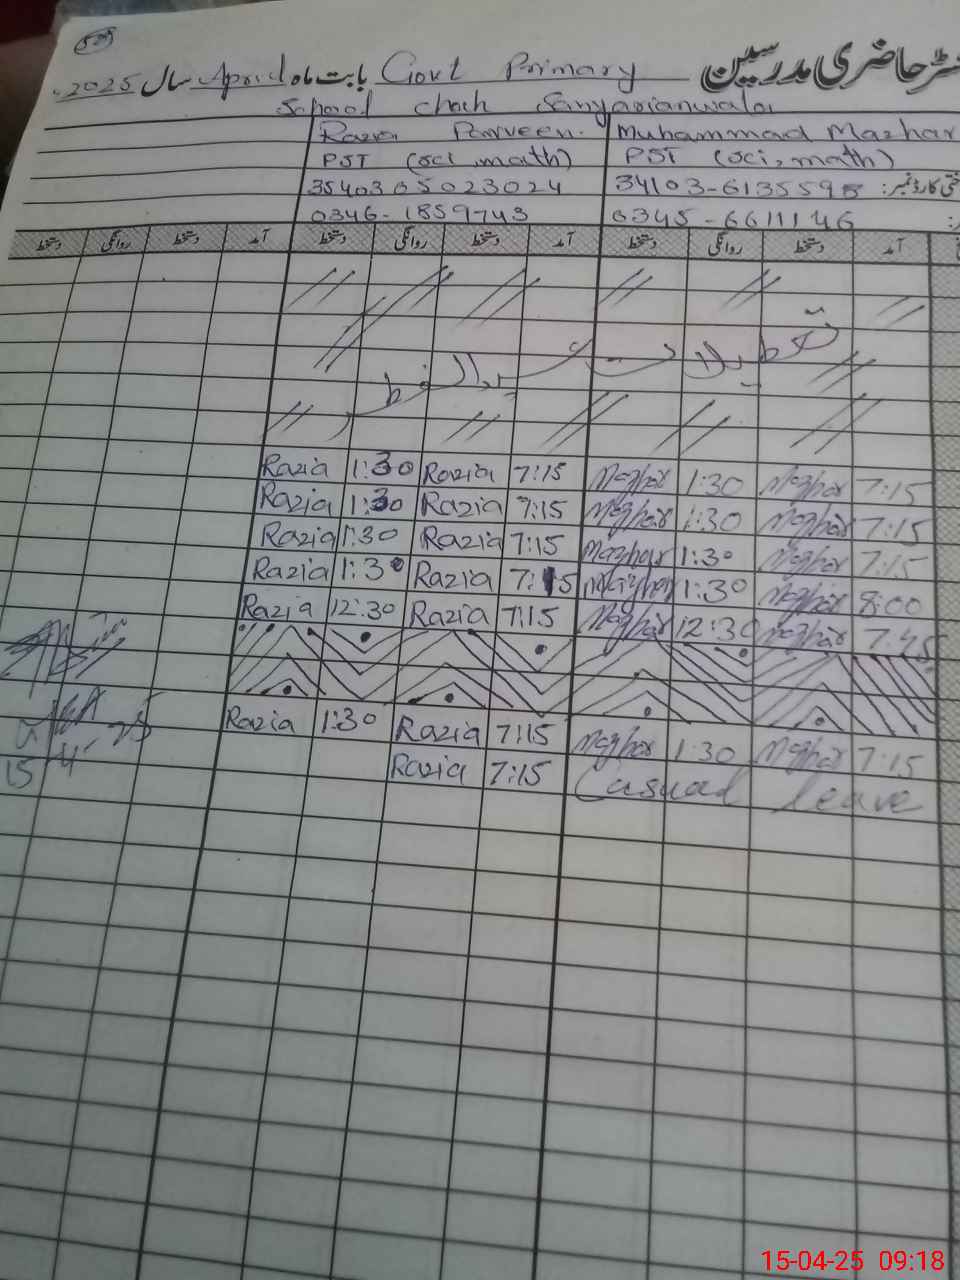 رجسٹر حاضری مدرسین Govt Primary بابت ماہ April سال 2025
School chak Sanyarianwala
Razia Parveen. Muhammad Mazhar
PST (sci, math) PST (sci, math)
3540305023024 34103-6135598
0346-1859743 0345-6611146
دستخط روانگی دستخط آمد دستخط روانگی دستخط آمد دستخط روانگی دستخط آمد
تعطیلات عید الفطر
Razia 1:30 Razia 7:15 Mazhar 1:30 Mazhar 7:15
Razia 1:30 Razia 7:15 Mazhar 1:30 Mazhar 7:15
Razia 1:30 Razia 7:15 Mazhar 1:30 Mazhar 7:15
Razia 1:30 Razia 7:15 Mazhar 1:30 Mazhar 8:00
Razia 12:30 Razia 7:15 Mazhar 12:30 Mazhar 7:45
Razia 1:30 Razia 7:15 Mazhar 1:30 Mazhar 7:15
Razia 7:15 Casual leave
15-04-25 09:18